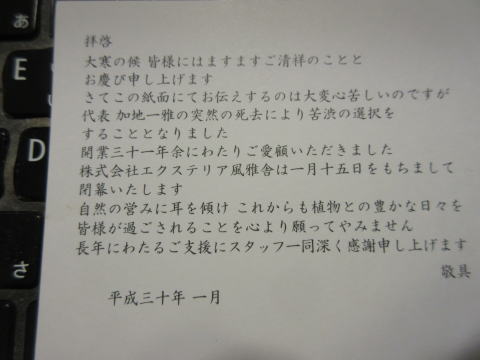 拝啓
大寒の候 皆様にはますますご清祥のことと
お慶び申し上げます
さてこの紙面にてお伝えするのは大変心苦しいのですが
代表 加地一雅の突然の死去により苦渋の選択を
することとなりました
開業三十一年余にわたりご愛顧いただきました
株式会社エクステリア風雅舎は一月十五日をもちまして
閉幕いたします
自然の営みに耳を傾け これからも植物との豊かな日々を
皆様が過ごされることを心より願ってやみません
長年にわたるご支援にスタッフ一同深く感謝申し上げます
敬具
平成三十年 一月
あ
E
D
さ